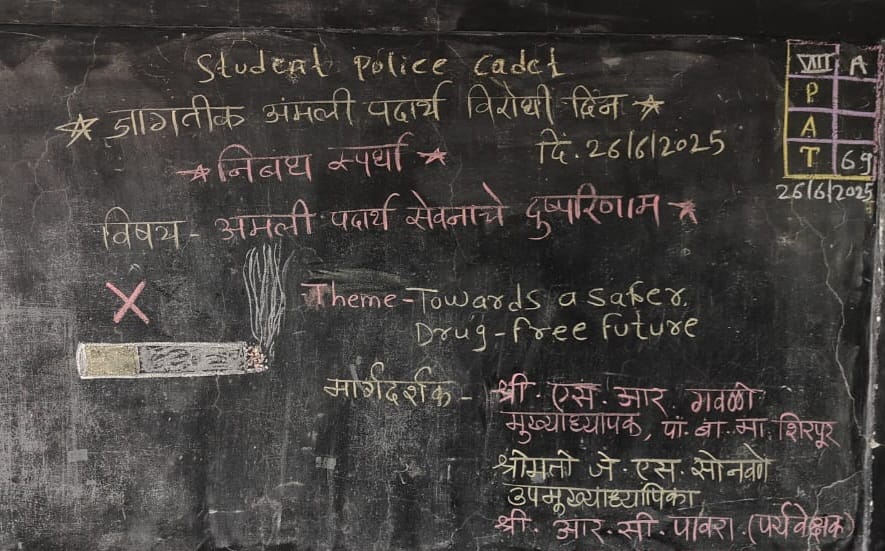 Student Police Cadet
★ जागतीक अंमली पदार्थ विरोधी दिन ★
★ निबंध स्पर्धा ★
दि. 26/6/2025
विषय - अमली पदार्थ सेवनाचे दुष्परिणाम ★
X
Theme - Towards a safer,
Drug-free Future
मार्गदर्शक - श्री. एस. आर. गवळी
मुख्याध्यापक, पां. बा. मा. शिरपूर
श्रीमती जे. एस. सोनवणे
उपमुख्याध्यापिका
श्री. आर. सी. पावरा. (पर्यवेक्षक)
VIII A
P
A
T 69
26/6/2025